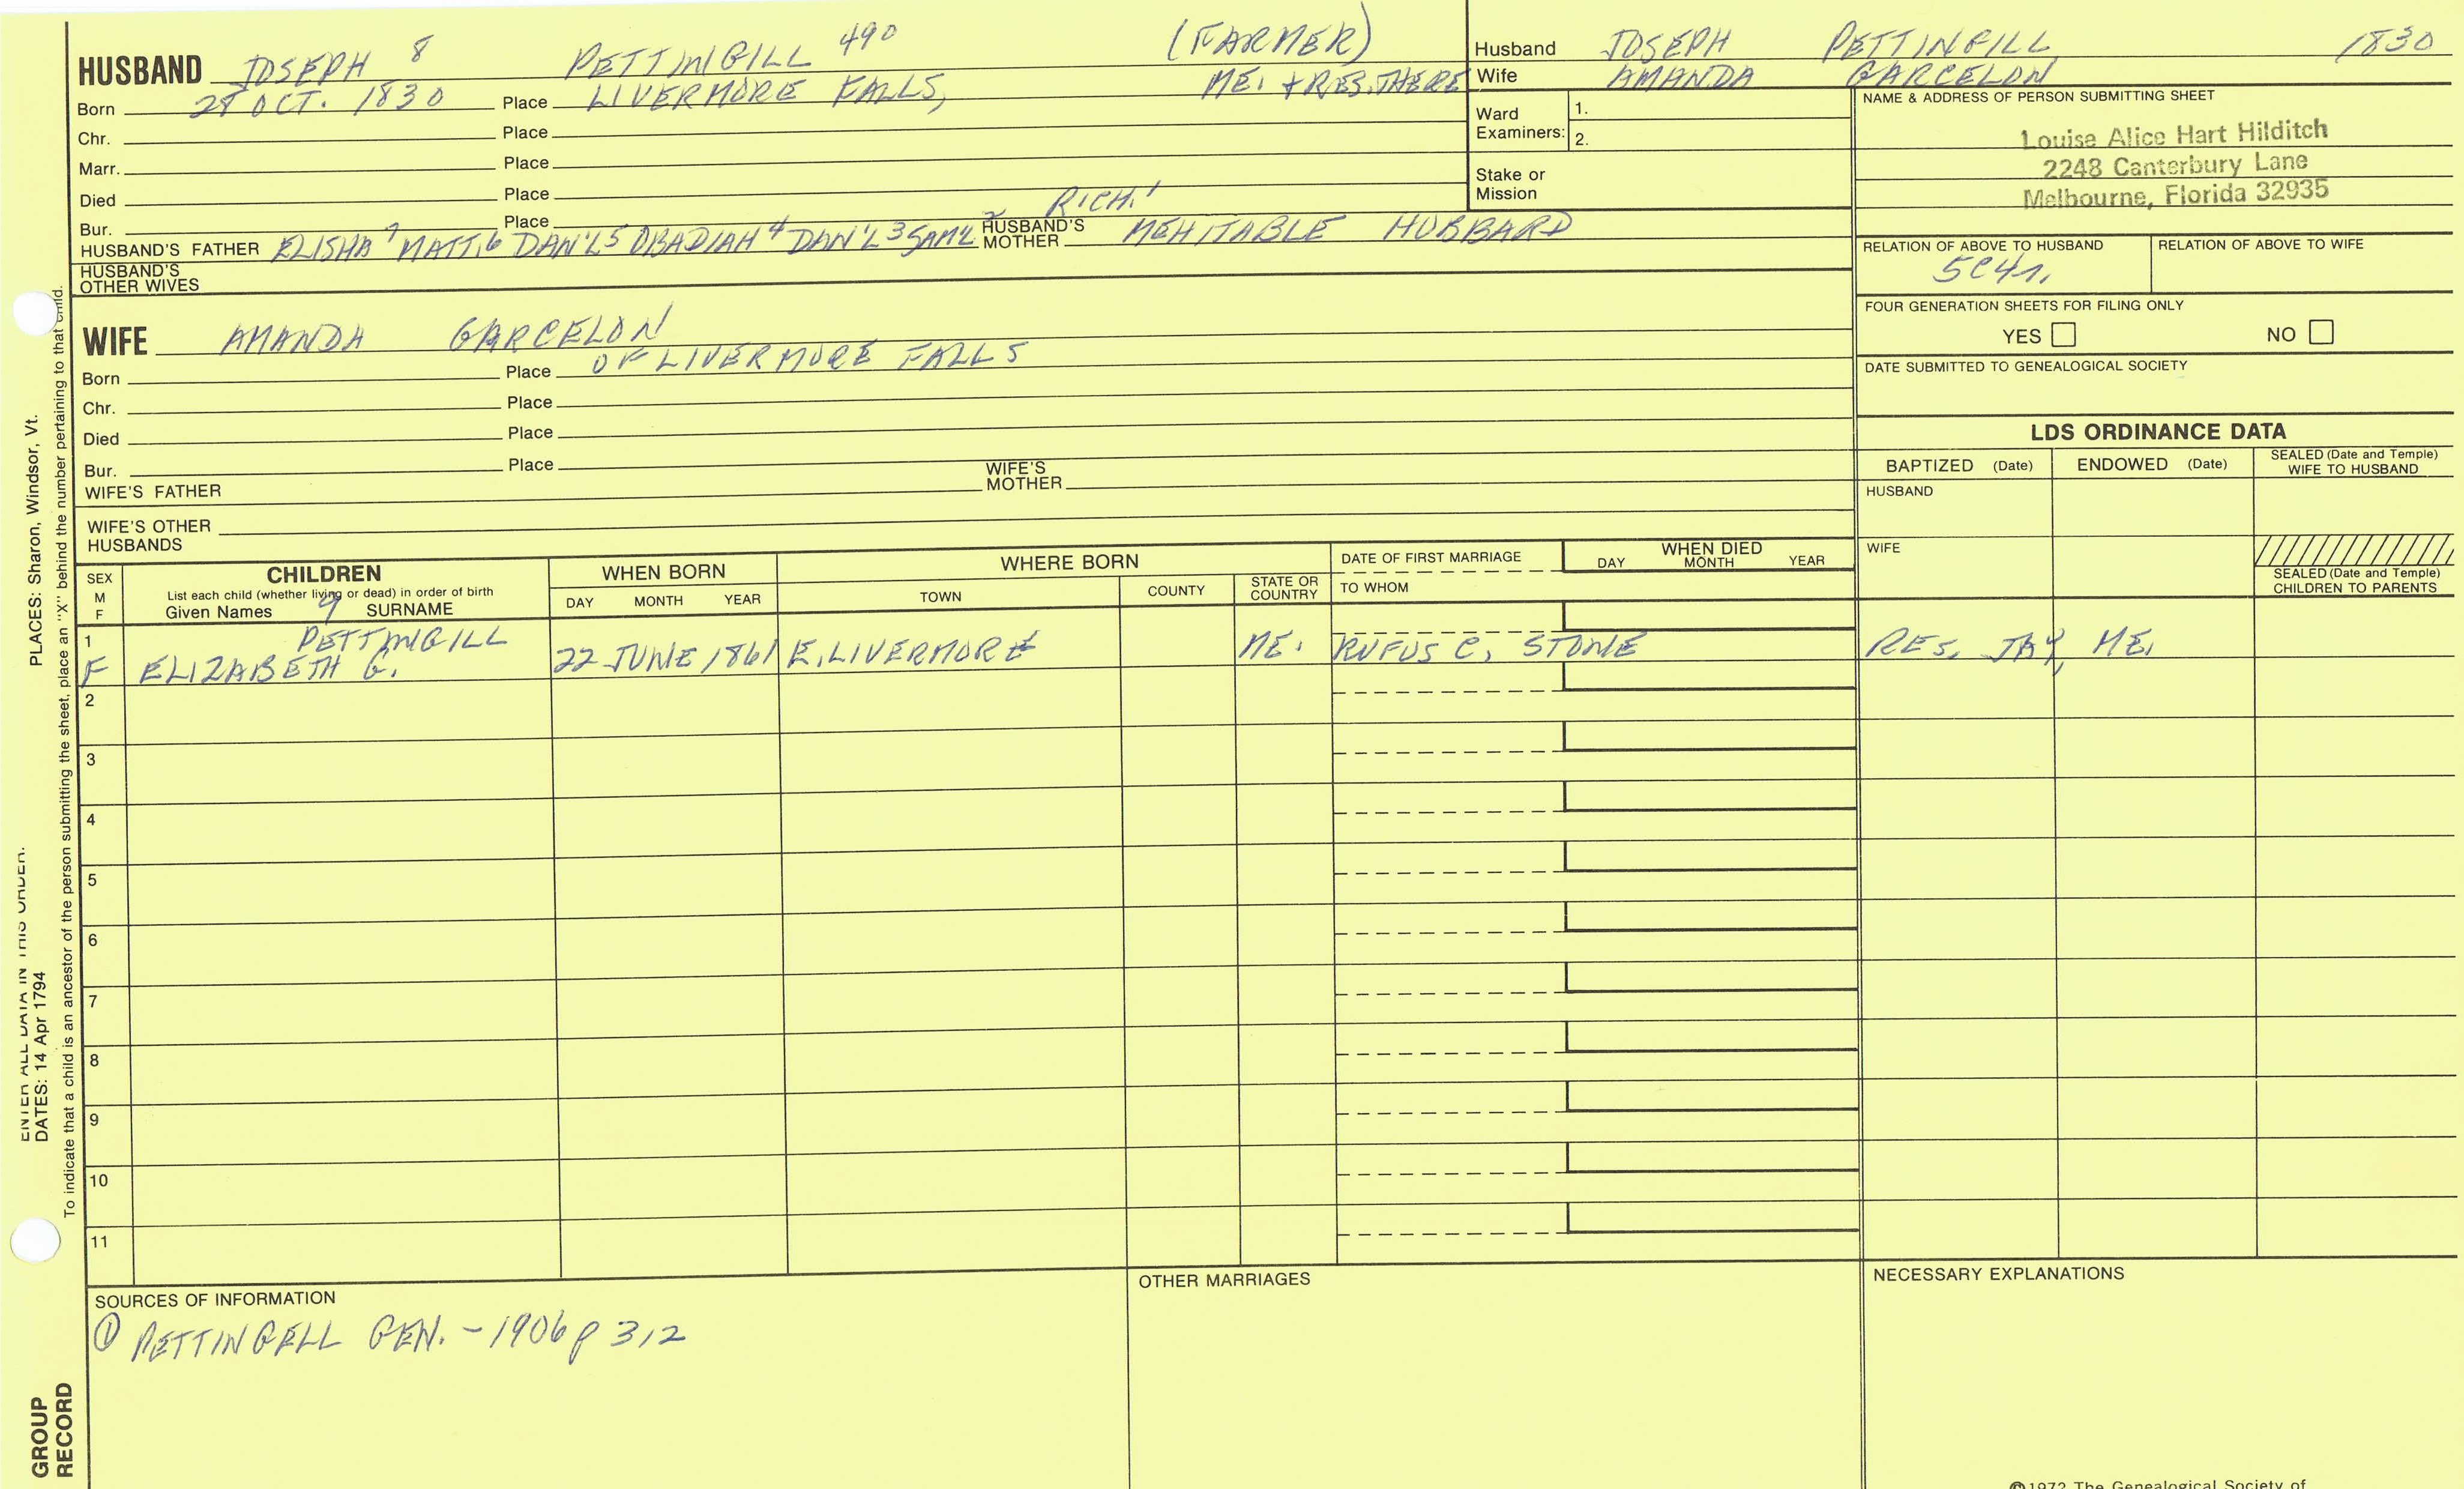 HUSBAND JOSEPH 8 PETTINGILL 490 (FARMER)
Born 28 OCT. 1830 Place LIVERMORE FALLS, ME. + RES. THERE
Chr. Place
Marr. Place
Died Place
Bur. Place
HUSBAND'S FATHER ELISHA 7 MATT. 6 DAN'L 5 OBADIAH 4 DAN'L 3 SAM'L 2 RICH. 1 HUSBAND'S MOTHER MEHITABLE HUBBARD
HUSBAND'S OTHER WIVES
WIFE AMANDA GARCELON
Born Place OF LIVERMORE FALLS
Chr. Place
Died Place
Bur. Place
WIFE'S FATHER WIFE'S MOTHER
WIFE'S OTHER HUSBANDS
Husband JOSEPH PETTINGILL 1830
Wife AMANDA GARCELON
Ward Examiners: 1. 2.
Stake or Mission
NAME & ADDRESS OF PERSON SUBMITTING SHEET
Louise Alice Hart Hilditch
2248 Canterbury Lane
Melbourne, Florida 32935
RELATION OF ABOVE TO HUSBAND RELATION OF ABOVE TO WIFE
5C4r.
FOUR GENERATION SHEETS FOR FILING ONLY
YES NO
DATE SUBMITTED TO GENEALOGICAL SOCIETY
LDS ORDINANCE DATA
BAPTIZED (Date) ENDOWED (Date) SEALED (Date and Temple) WIFE TO HUSBAND
HUSBAND
WIFE
SEALED (Date and Temple) CHILDREN TO PARENTS
SEX M F CHILDREN
List each child (whether living or dead) in order of birth
Given Names 9 SURNAME
WHEN BORN
DAY MONTH YEAR
WHERE BORN
TOWN COUNTY STATE OR COUNTRY
DATE OF FIRST MARRIAGE
TO WHOM
WHEN DIED
DAY MONTH YEAR
1 PETTINGILL
F ELIZABETH G. 22 JUNE 1861 E. LIVERMORE ME. RUFUS C. STONE RES. JAY, ME.
2
3
4
5
6
7
8
9
10
11
SOURCES OF INFORMATION
① PETTINGELL GEN. - 1906 p 312
OTHER MARRIAGES
NECESSARY EXPLANATIONS
©1972 The Genealogical Society of
ENTER ALL DATA IN THIS ORDER:
DATES: 14 Apr 1794 PLACES: Sharon, Windsor, Vt.
To indicate that a child is an ancestor of the person submitting the sheet, place an "X" behind the number pertaining to that child.
GROUP
RECORD